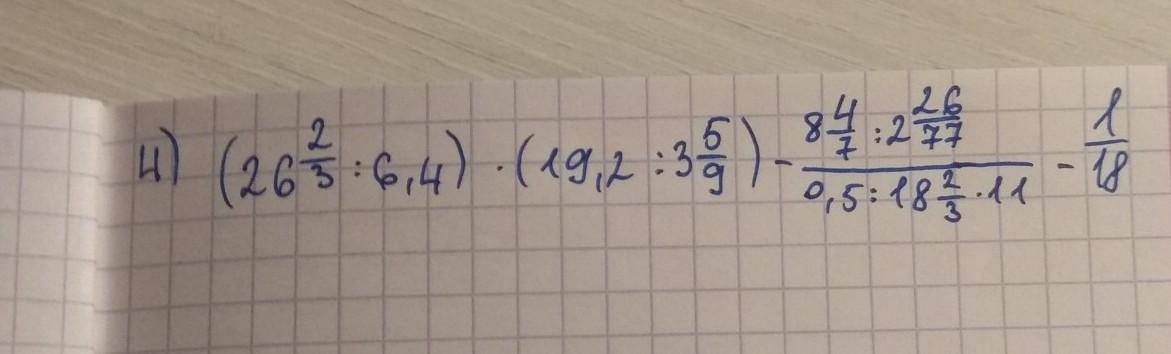 4) (26 2/3 : 6,4) · (19,2 : 3 5/9) - (8 4/7 : 2 26/77)/(0,5 : 18 2/3 · 11) - 1/18